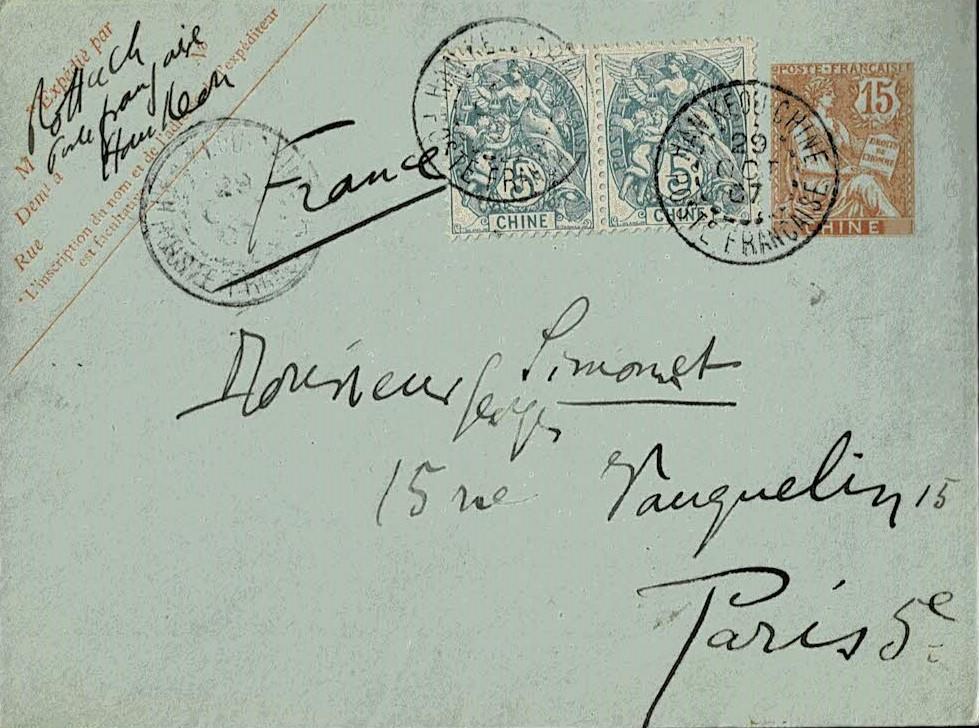 Expédié par
M
Demt à
Rue
*L'inscription du nom et de
est facultative
l'expéditeur
Poste française
Hankeou
France
HANKEOU
POSTE FRANÇAISE
5
CHINE
5
CHINE
HAN-KEOU CHINE
29
OCT
07
POSTE FRANÇAISE
POSTE FRANÇAISE
15
DROITS
DE
L'HOMME
CHINE
Monsieur Simonet
Georges
15 rue Vauquelin 15
Paris 5e